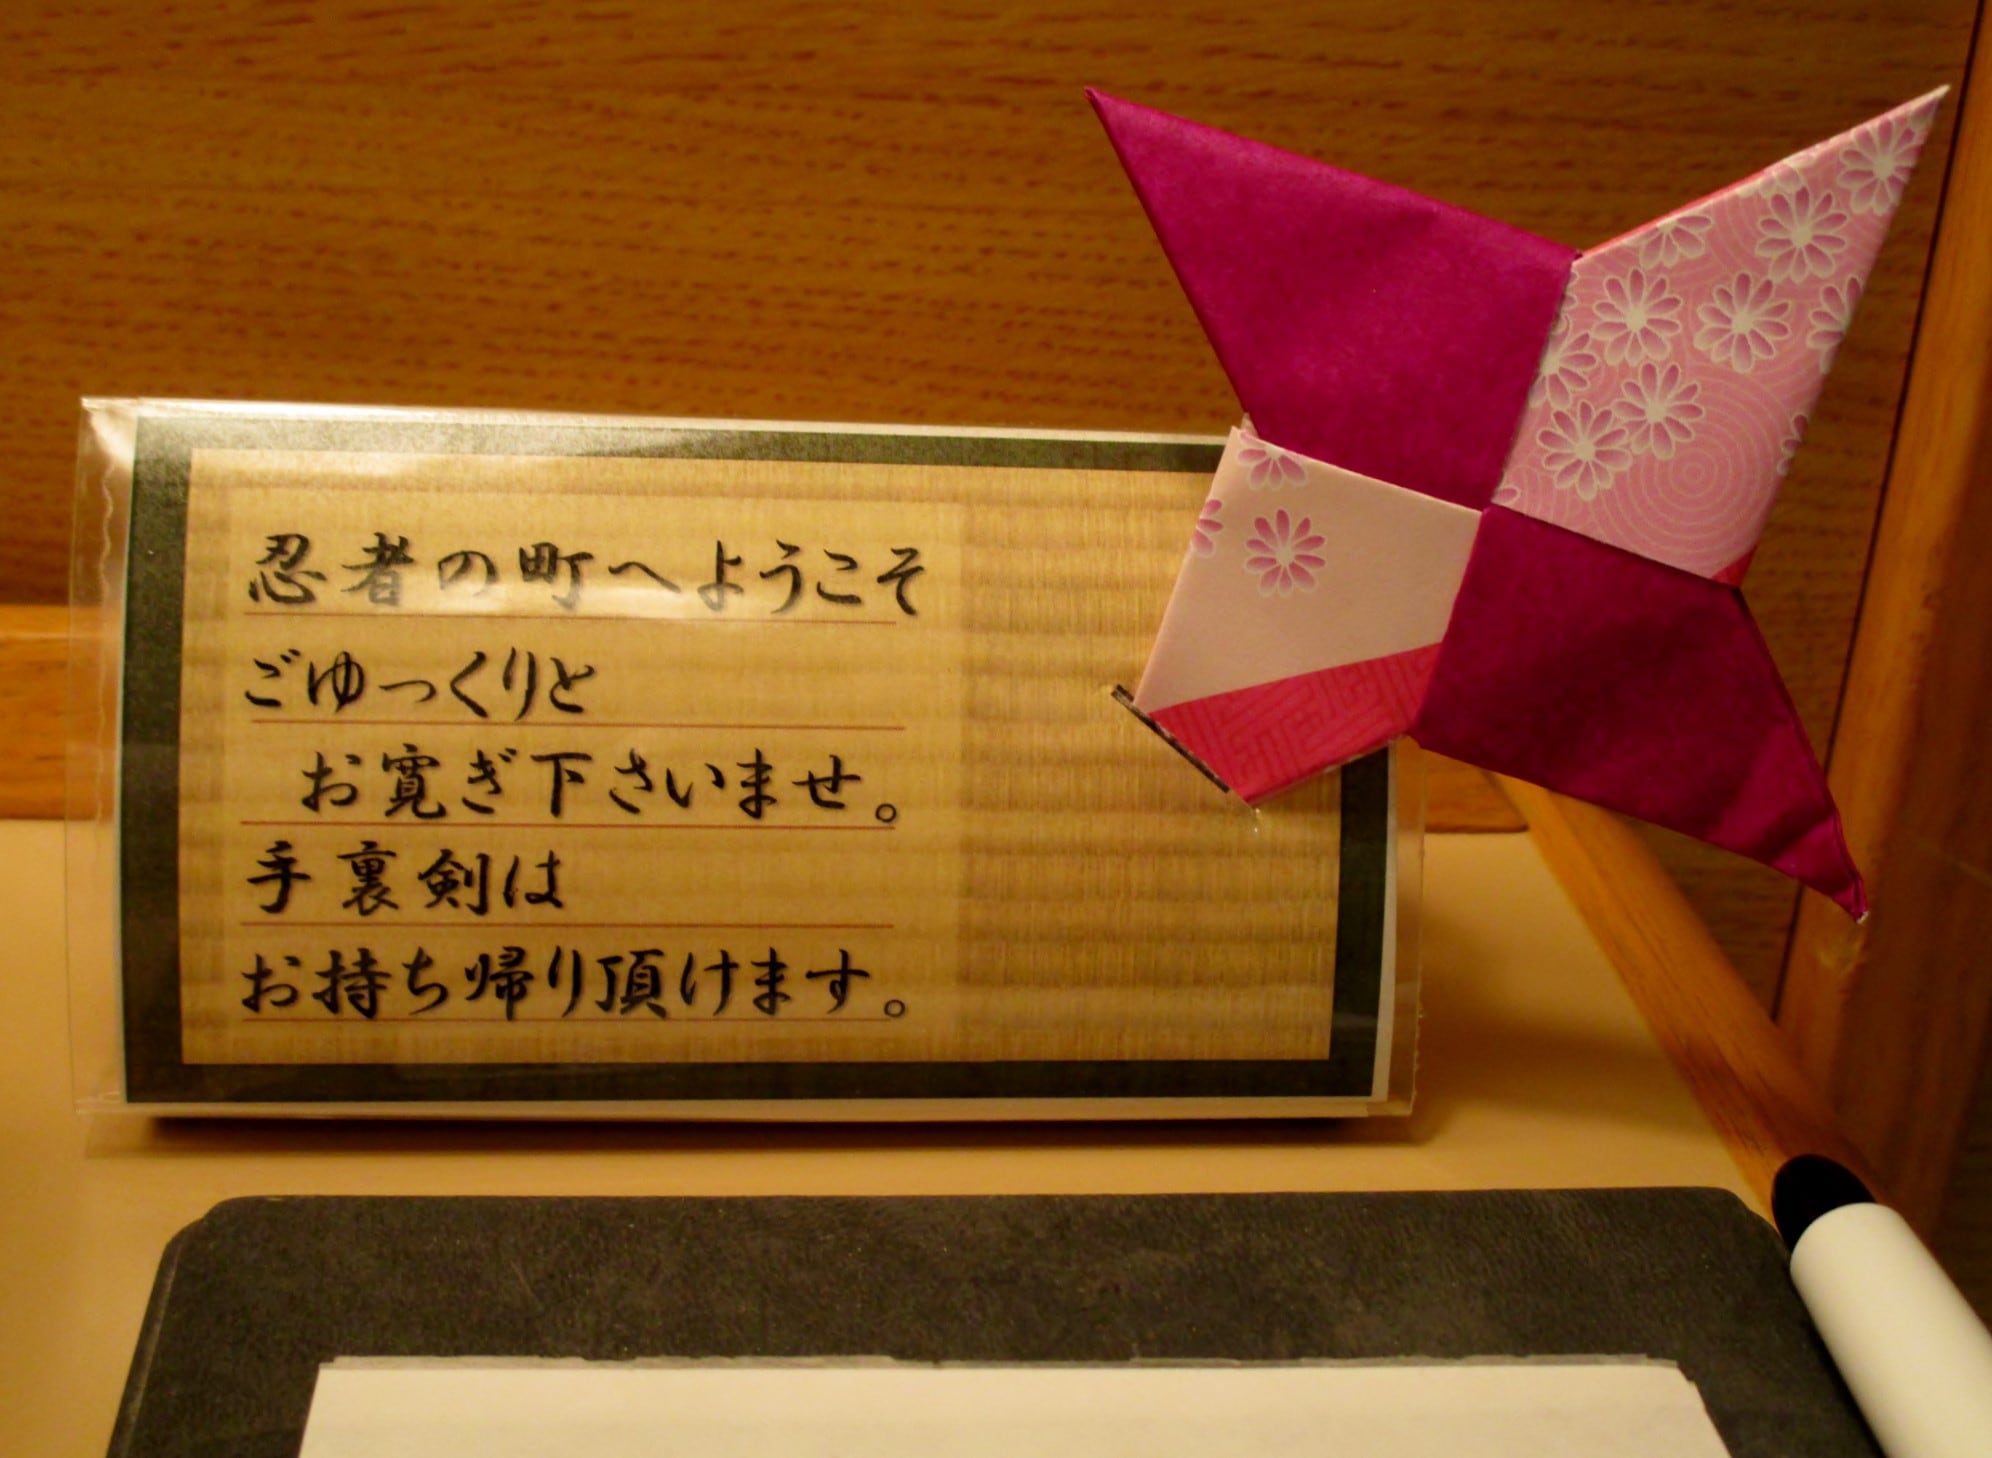 忍者の町へようこそ
ごゆっくりと
お寛ぎ下さいませ。
手裏剣は
お持ち帰り頂けます。